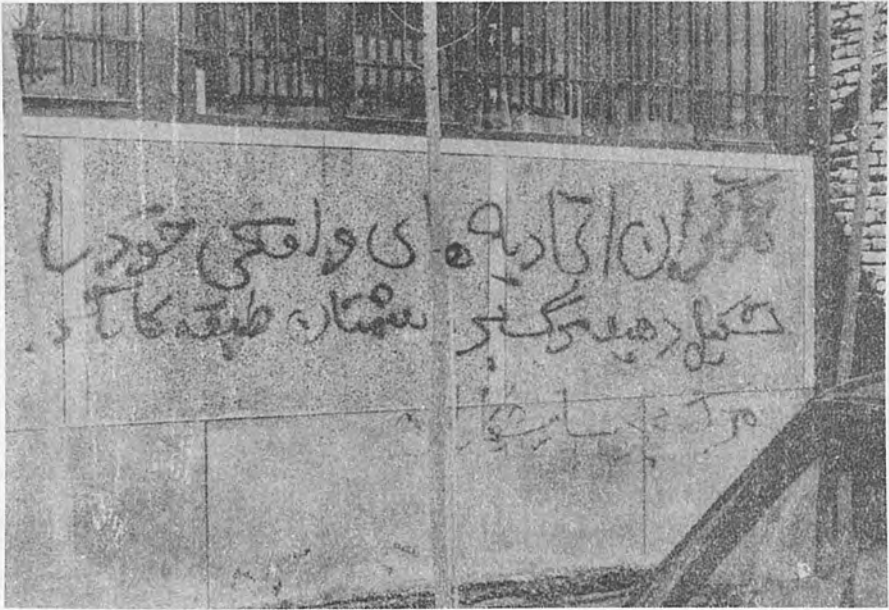 کارگران اتحادیه های واقعی خود را
تشکیل دهید مرگ بر دشمنان طبقه کارگر
مرگ بر